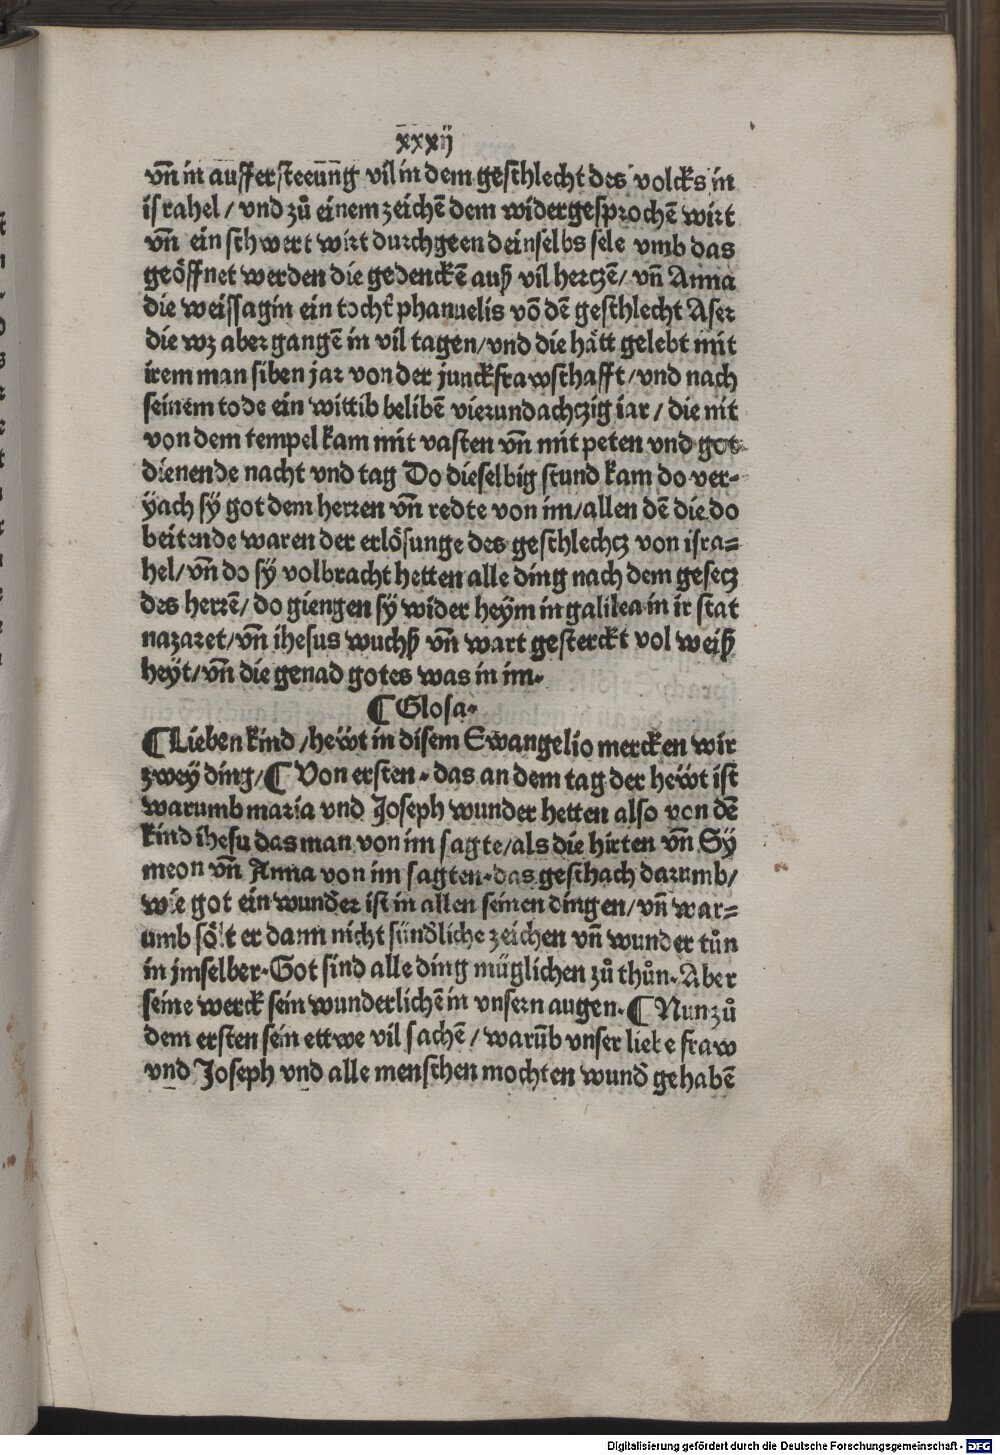 xxxij
vñ in aufferſteeūng vil in dem geſchlecht des volcks in
iſrahel / vnd zů einem zeichē dem widergeſprochē wirt
vñ ein ſchwert wirt durchgeen dein ſelbs ſele vmb das
geöffnet werden die gedenckē auß vil hertzē / vñ Anna
die weiſſagin ein tocht̄ phanuelis vō dē geſchlecht Aſer
die wz aber gangē in vil tagen / vnd die hätt gelebt mit
irem man ſiben jar von der junckfrawſchafft / vnd nach
ſeinem tode ein wittib belibē vierundachczig iar / die nit
von dem tempel kam mit vaſten vñ mit peten vnd got
dienende nacht vnd tag Do dieſelbig ſtund kam do ver⸗
yach ſÿ got dem herren vñ redte von im / allen dē die do
beitende waren der erlöſunge des geſchlechcz von iſra⸗
hel / vñ do ſÿ volbracht hetten alle ding nach dem geſecz
des herrē / do giengen ſÿ wider heÿm in galilea in ir ſtat
nazaret / vñ iheſus wuchß vñ wart geſterckt vol weiß
heÿt / vñ die genad gotes was in im.
¶ Gloſa.
¶ Lieben kind / heẅt in diſem Ewangelio mercken wir
zweÿ ding / ¶ Von erſten. das an dem tag der heẅt iſt
warumb maria vnd Joſeph wunder hetten alſo von dē
kind iheſu das man von im ſagte / als die hirten vñ Sÿ
meon vñ Anna von im ſagten. das geſchach darumb /
wie got ein wund̄er iſt in allen ſeinen dingen / vñ war⸗
umb ſölt er dann nicht ſünd̄liche zeichen vñ wunder tůn
in jmſelber. Got ſind alle ding müglichen zů thůn. Aber
ſeine werck ſein wunderlichē in vnſern augen. ¶ Nun zů
dem erſten ſein ettwe vil ſachē / warūb vnſer liebe fraw
vnd Joſeph vnd alle menſchen mochten wund̄ gehabē
Digitalisierung gefördert durch die Deutsche Forschungsgemeinschaft - DFG